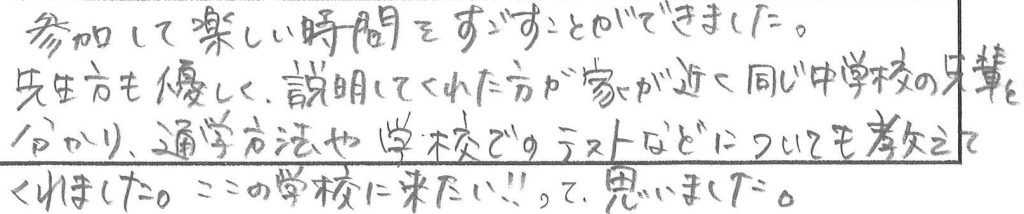 参加して楽しい時間をすごすことができました。
先生方も優しく、説明してくれた方が家が近く同じ中学校の先輩と
分かり、通学方法や学校でのテストなどについても教えて
くれました。ここの学校に来たい!!って、思いました。